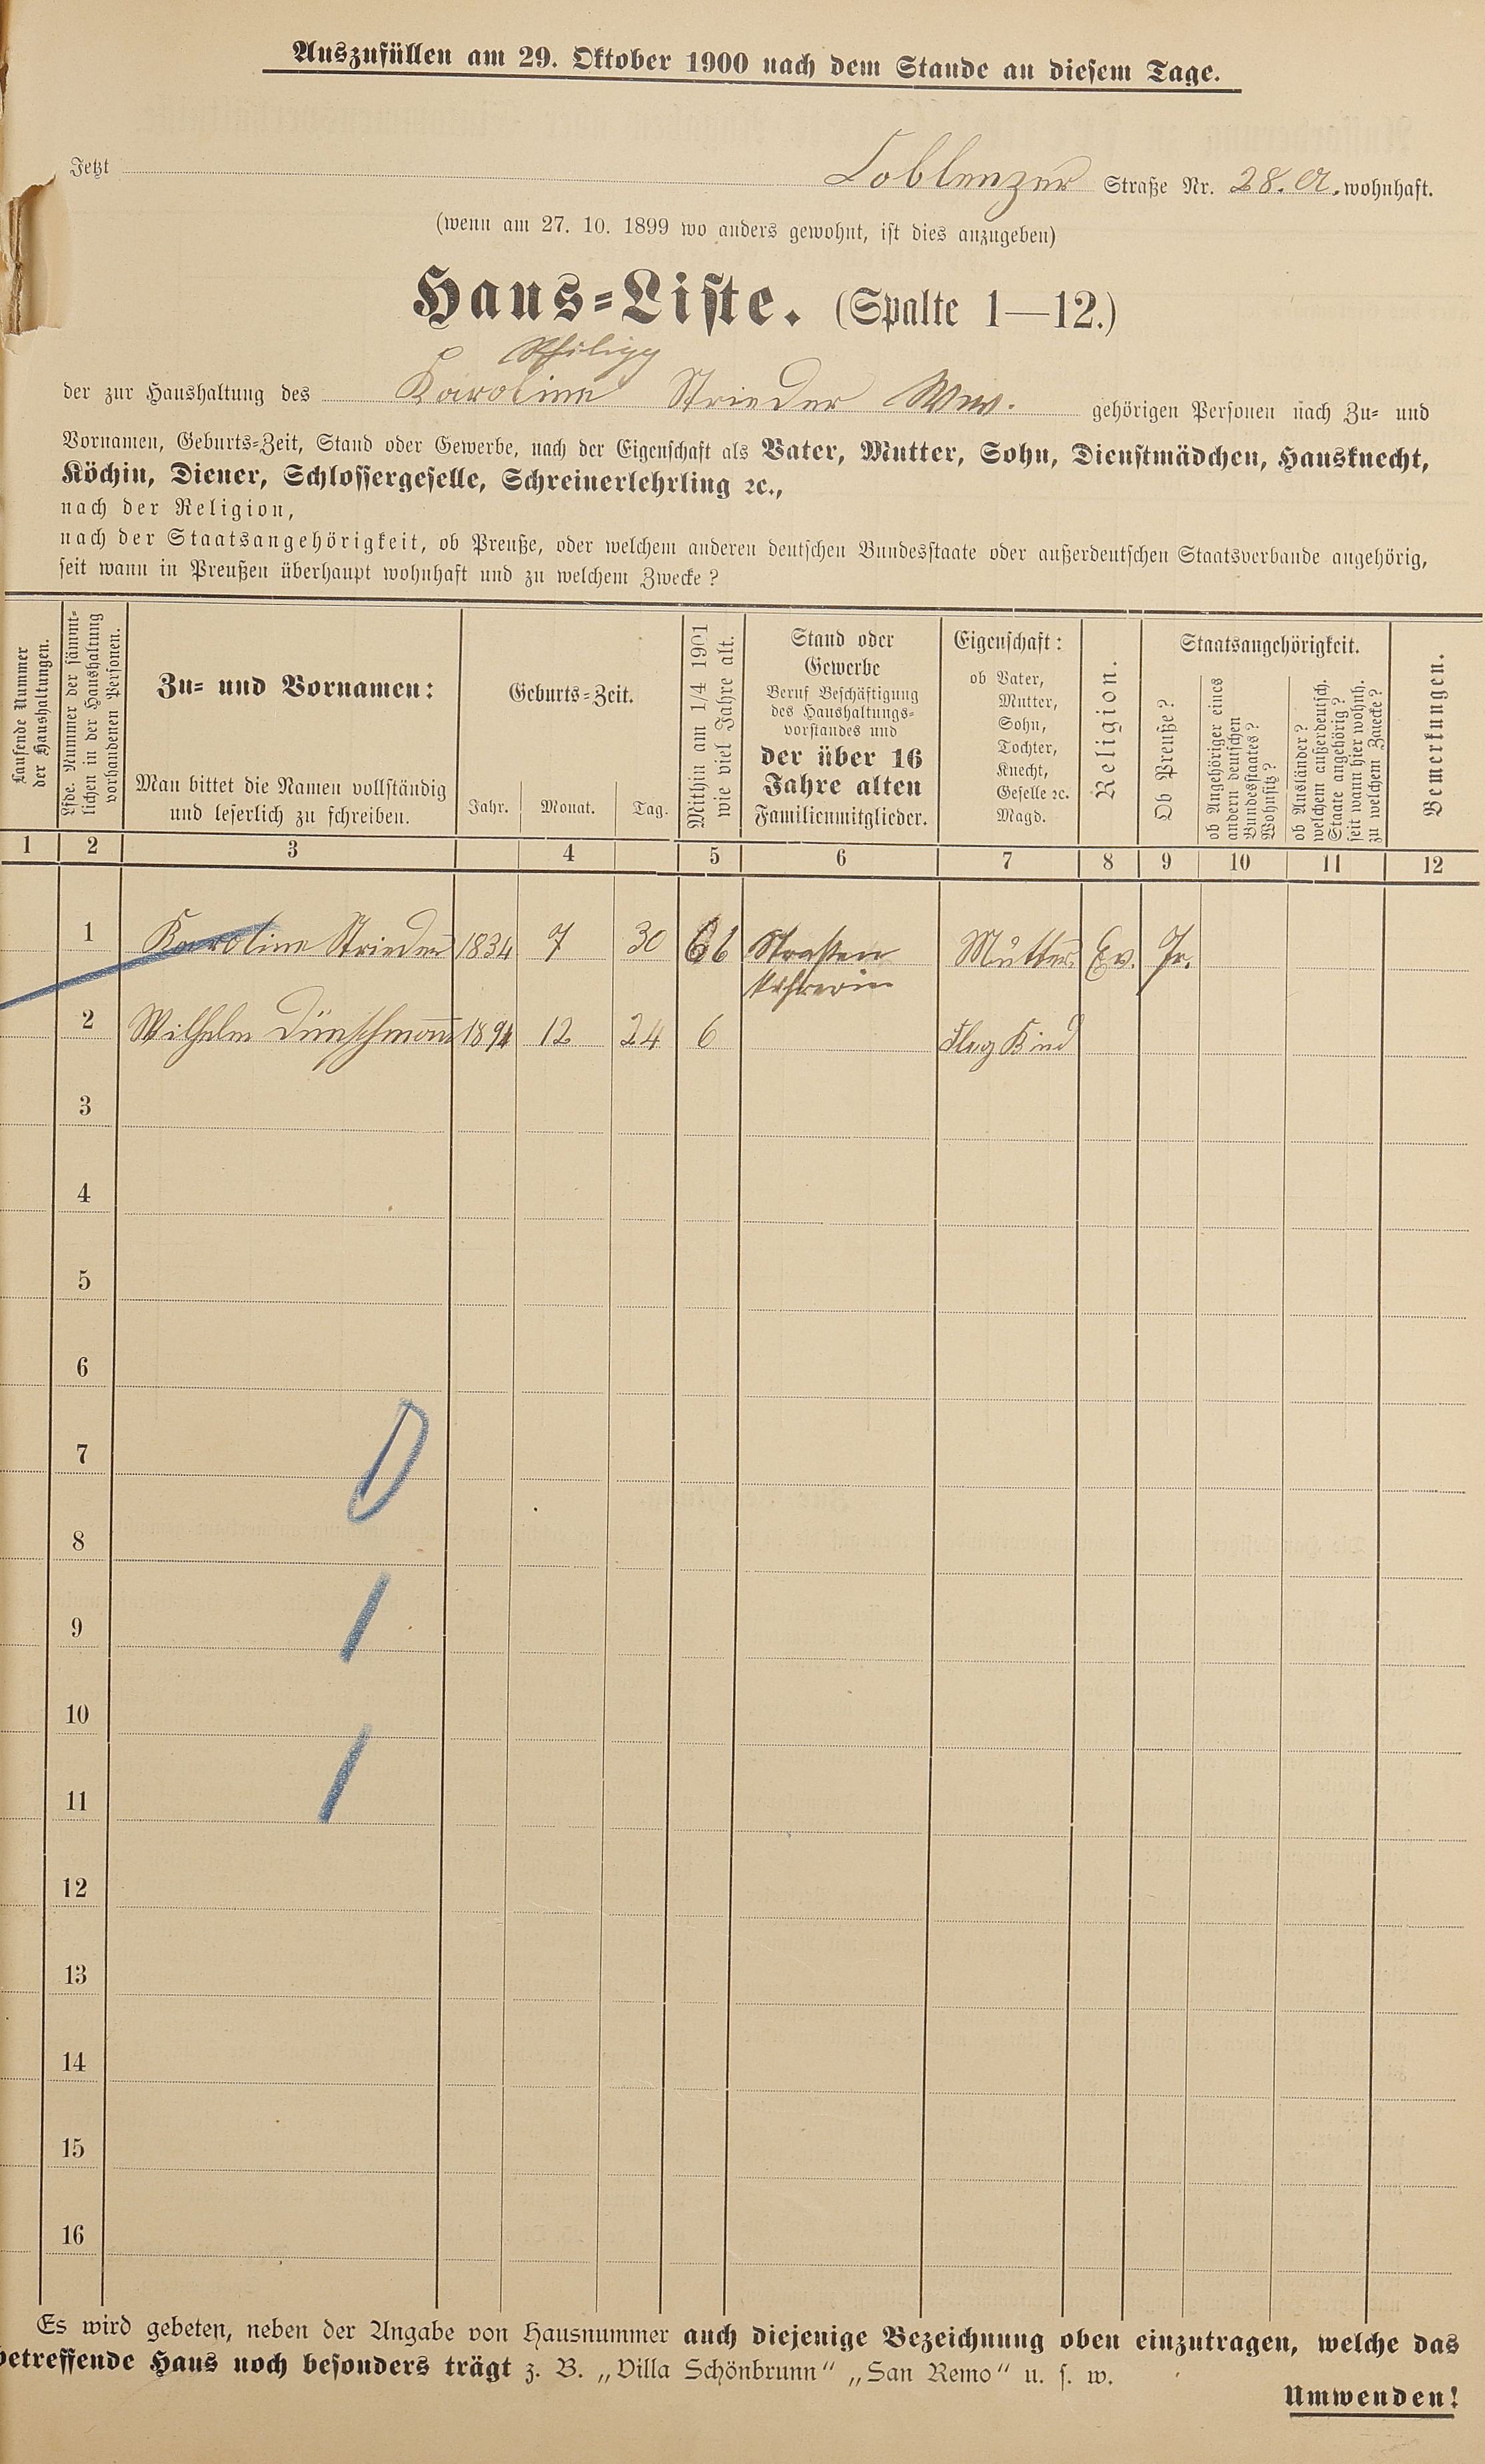 Auszufüllen am 29. Oktober 1900 nach dem Stande an diesem Tage.
Jetzt Coblenzer Straße Nr. 28. A. wohnhaft.
(wenn am 27. 10. 1899 wo anders gewohnt, ist dies anzugeben)
Haus-Liste. (Spalte 1—12.)
Philipp
der zur Haushaltung des Karoline Strieder Ww. gehörigen Personen nach Zu- und
Vornamen, Geburts-Zeit, Stand oder Gewerbe, nach der Eigenschaft als Vater, Mutter, Sohn, Dienstmädchen, Hausknecht,
Köchin, Diener, Schlossergeselle, Schreinerlehrling ꝛc.,
nach der Religion,
nach der Staatsangehörigkeit, ob Preuße, oder welchem anderen deutschen Bundesstaate oder außerdeutschen Staatsverbande angehörig,
seit wann in Preußen überhaupt wohnhaft und zu welchem Zwecke?
Laufende Nummer
der Haushaltungen.
Lfde. Nummer der sämmt-
lichen in der Haushaltung
vorhandenen Personen.
Zu- und Vornamen:
Man bittet die Namen vollständig
und leserlich zu schreiben.
Geburts-Zeit.
Jahr. Monat. Tag.
Mithin am 1/4 1901
wie viel Jahre alt.
Stand oder
Gewerbe
Beruf Beschäftigung
des Haushaltungs-
vorstandes und
der über 16
Jahre alten
Familienmitglieder.
Eigenschaft:
ob Vater,
Mutter,
Sohn,
Tochter,
Knecht,
Geselle ꝛc.
Magd.
Religion.
Staatsangehörigkeit.
Ob Preuße?
ob Angehöriger eines
andern deutschen
Bundesstaates?
Wohnsitz?
ob Ausländer?
welchem außerdeutsch.
Staate angehörig?
seit wann hier wohnh.
zu welchem Zwecke?
Bemerkungen.
1 2 3 4 5 6 7 8 9 10 11 12
1 Karoline Strieder 1834 7 30 66 Straßen Mutter Ev. Pr.
kehrerin
2 Wilhelm Dünschmann 1894 12 24 6 Kind
3
4
5
6
7
8
9
10
11
12
13
14
15
16
Es wird gebeten, neben der Angabe von Hausnummer auch diejenige Bezeichnung oben einzutragen, welche das
betreffende Haus noch besonders trägt z. B. „Villa Schönbrunn“ „San Remo“ u. s. w.
Umwenden!